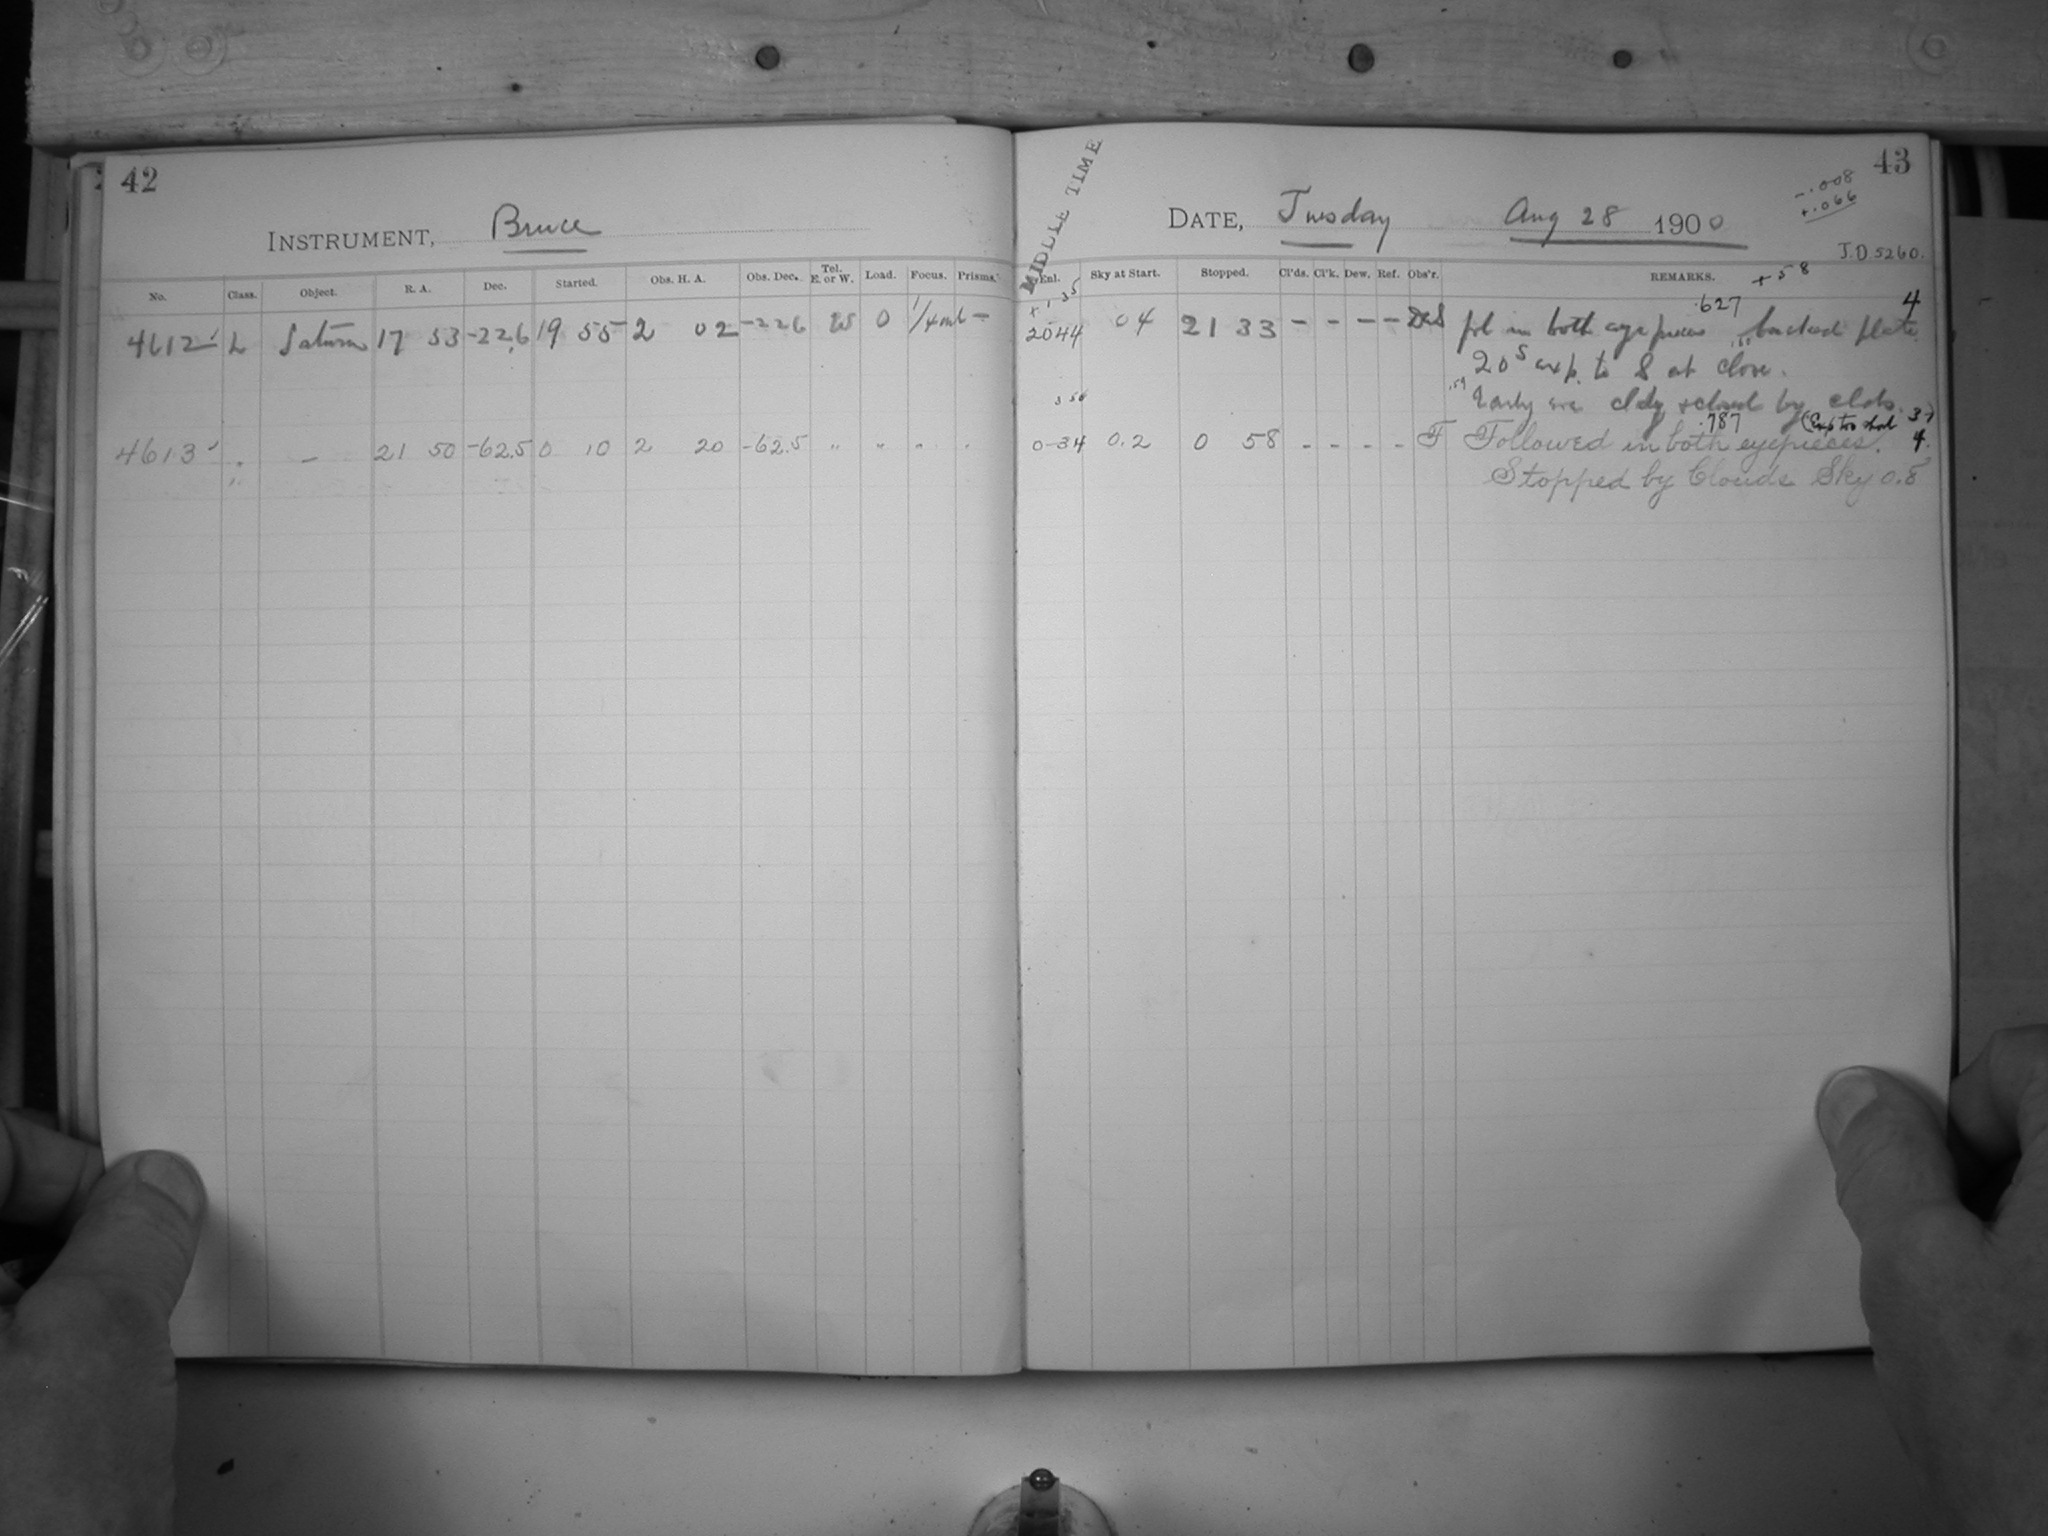 42
INSTRUMENT, Bruce
No. Class. Object. R. A. Dec. Started. Obs. H. A. Obs. Dec. Tel. E. or W. Load. Focus. Prisms.
4612 L Saturn 17 53 -22.6 19 55 2 02 -22.6 W 0 1/4 —
4613 " — 21 50 -62.5 0 10 2 20 -62.5 " " " "
43
-.008
+.066
MIDDLE TIME
DATE, Tuesday Aug 28 1900
J.D. 5260.
Enl. Sky at Start. Stopped. Cl'ds. Cl'k. Dew. Ref. Obs'r. REMARKS.
+58
+1 35
.627 4
2044 04 21 33 - - - - fol in both eyepieces backed plate
20s exp. to S at close.
350
Early eve cldy closed by clds.
.787 (Exp too short 37)
0-34 0.2 0 58 - - - - F Followed in both eyepieces. 4
Stopped by Clouds Sky 0.8